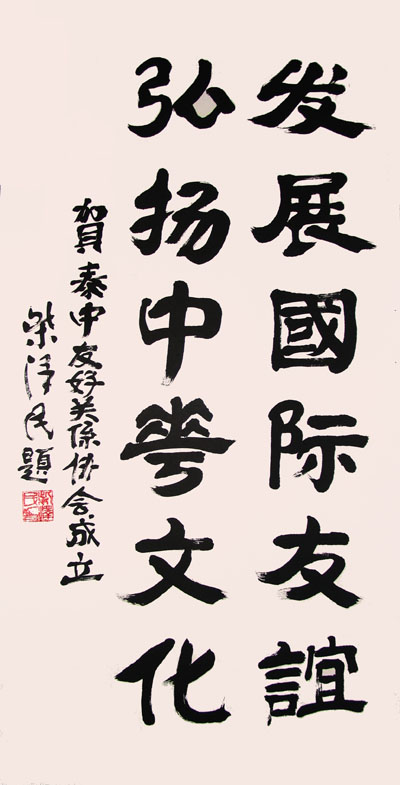 发展國际友誼
弘扬中華文化
賀泰中友好关係协会成立
柴泽民题